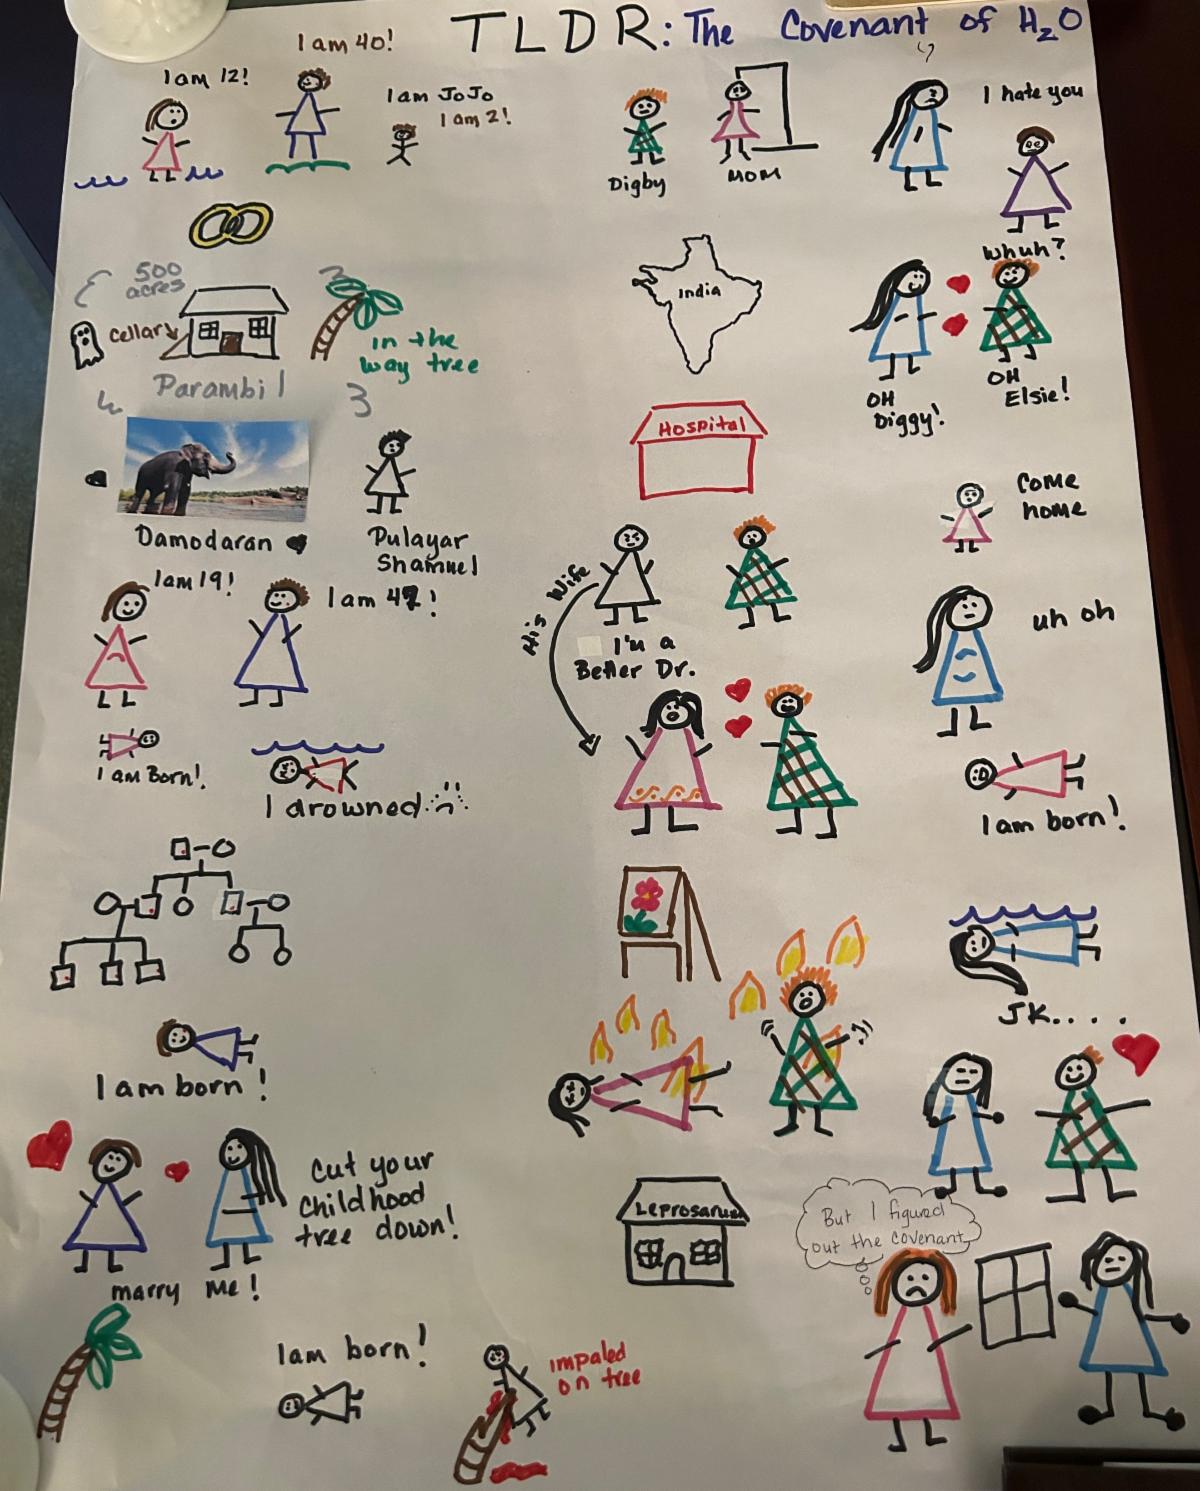 TLDR: The Covenant of H2O
I am 40!
I am 12!
I am JoJo
I am 2!
500
acres
cellar
Parambil
in the
way tree
Damodaran
Pulayar
Shamuel
I am 19!
I am Born!
I drowned
I am born!
Cut your
childhood
tree down!
marry me!
I am born!
impaled
on tree
Digby
MOM
India
Hospital
His Wife
I'm a
Better Dr.
Leprosarum
I hate you
Whuh?
OH
Diggy!
OH
Elsie!
Come
home
uh oh
I am born!
JK....
But I figured
out the covenant